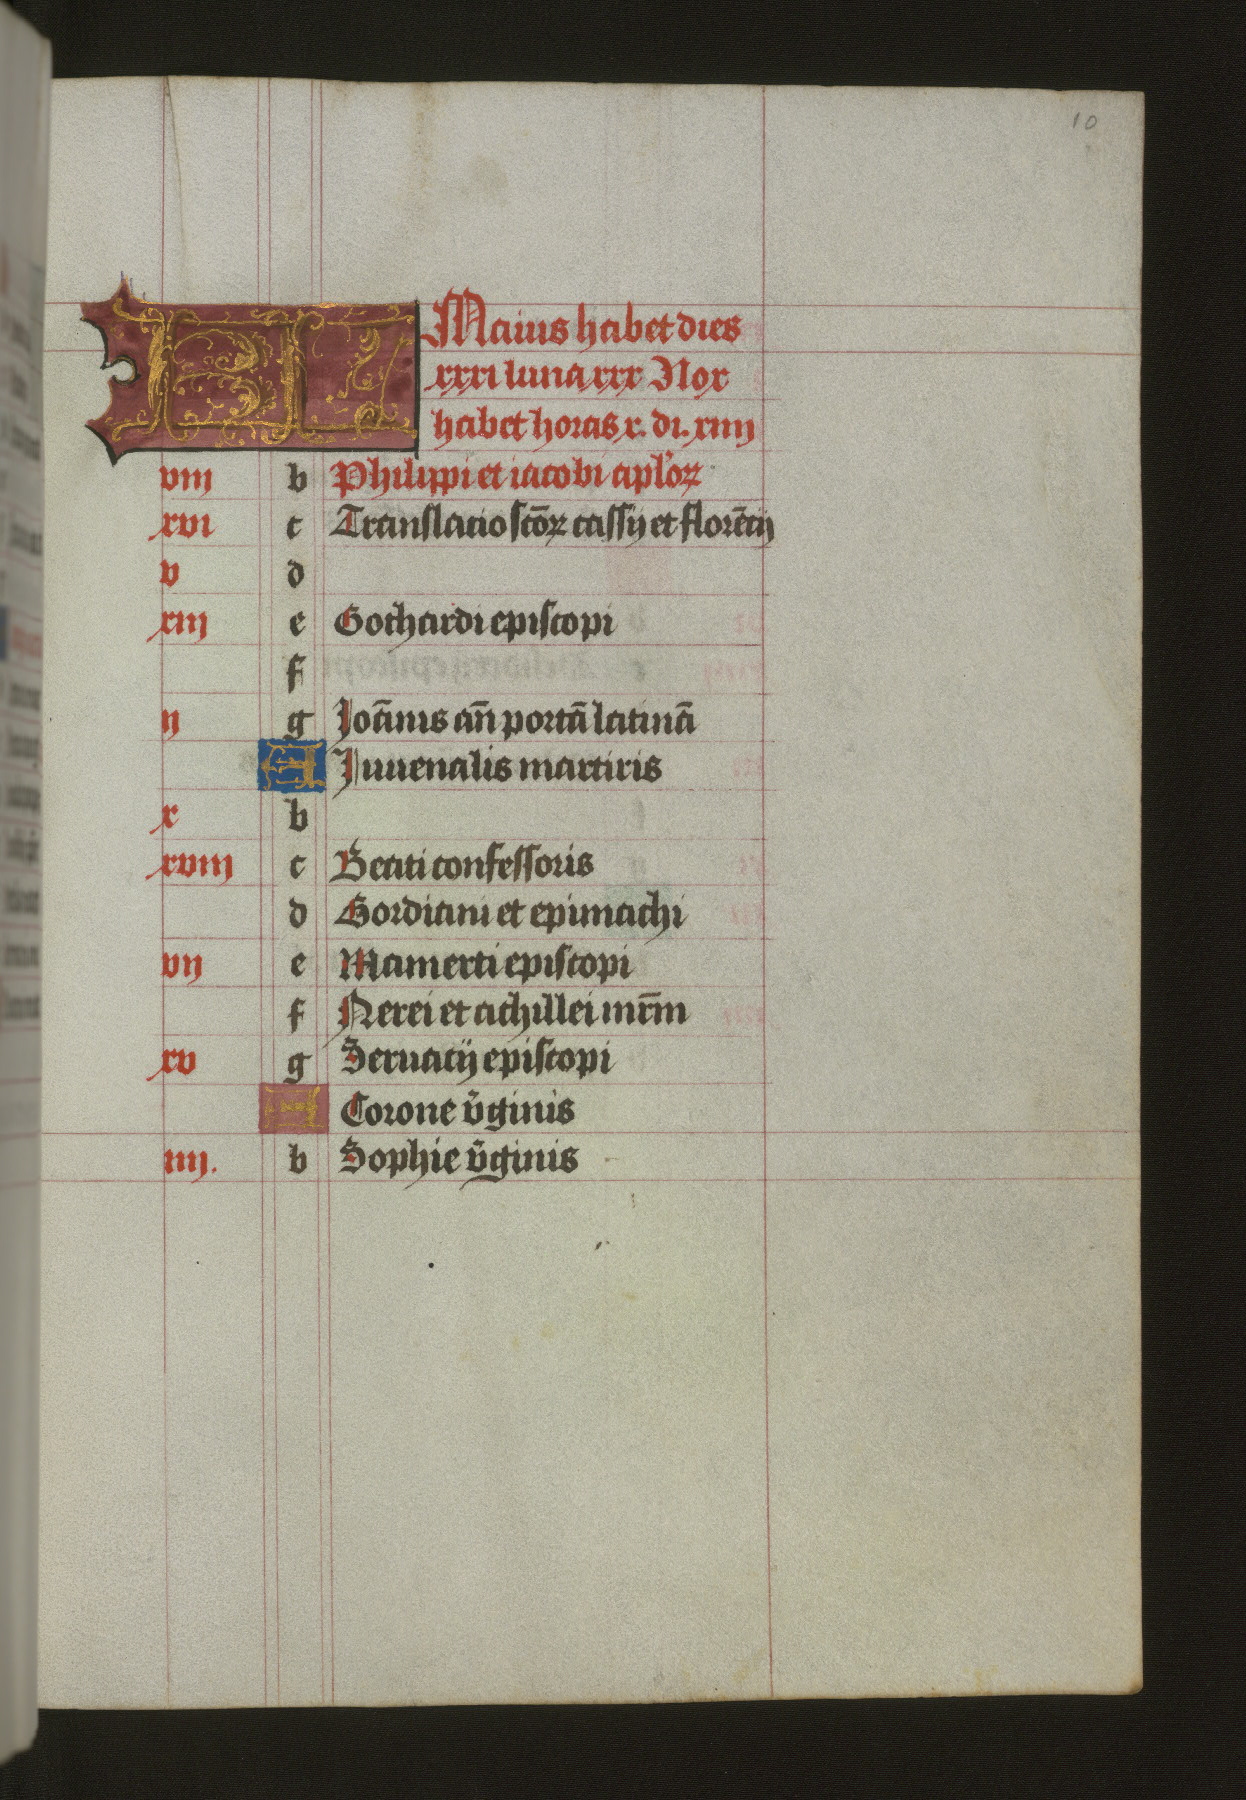 10
KL Maius habet dies
xxxi luna xxx Nox
habet horas x. di. xiiij
viij b Philippi et iacobi apl'oꝝ
xvi c Translatio sctōꝝ cassij et florētij
v d
xiij e Gothardi episcopi
f
ij g Joānis an̄ portā latinā
A Juuenalis martiris
x b
xviij c Beati confessoris
d Gordiani et epimachi
vij e Mamerti episcopi
f Nerei et achillei mr̄m
xv g Seruatij episcopi
A Corone v̄ginis
iiij. b Sophie v̄ginis